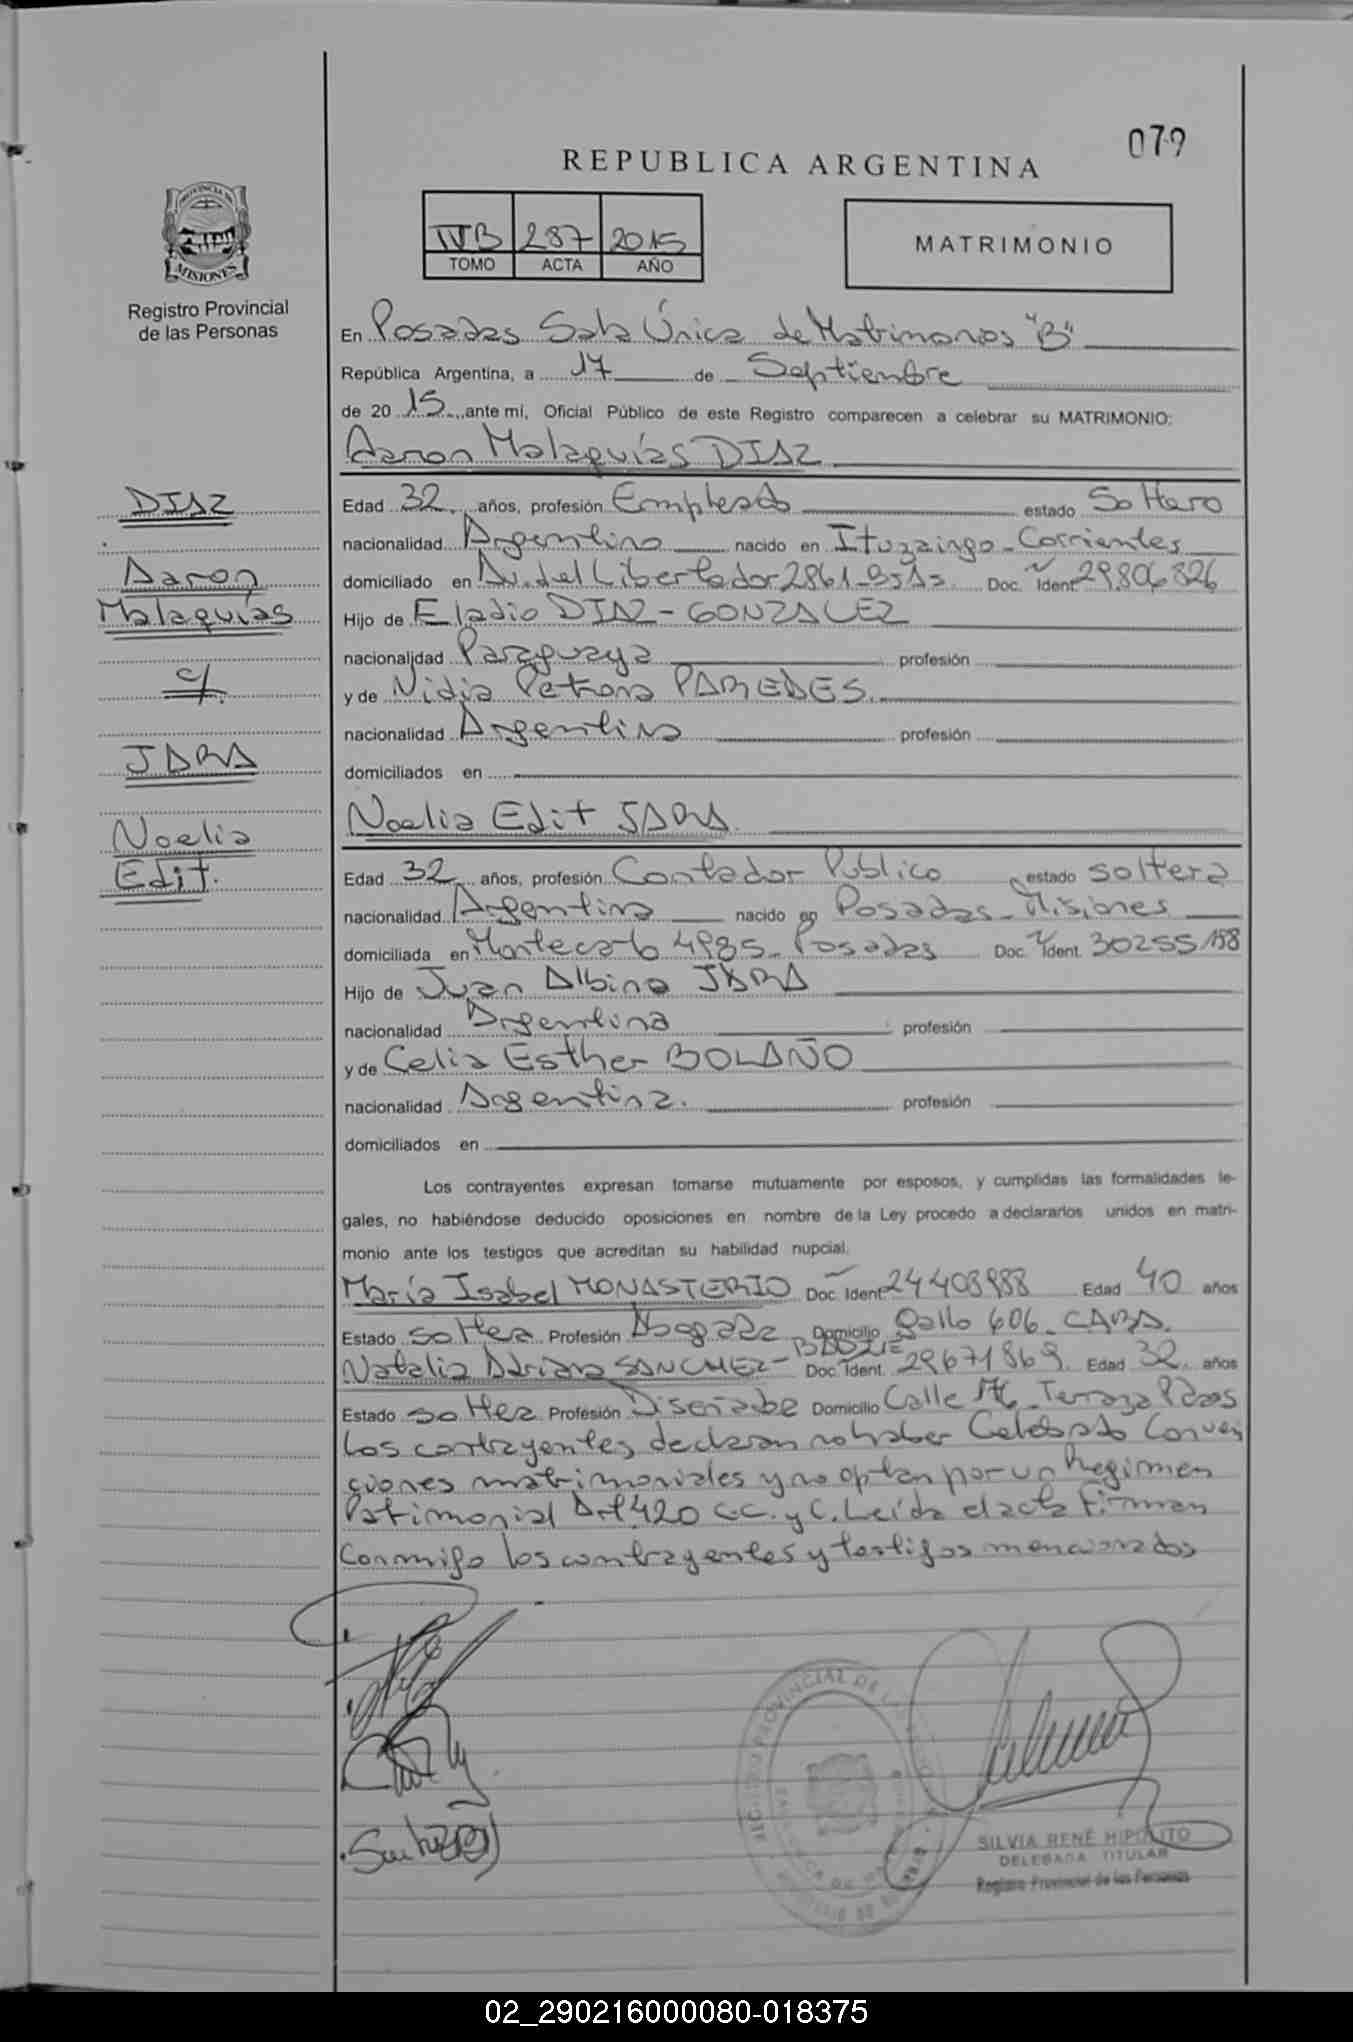 079
REPUBLICA ARGENTINA
PROVINCIA DE
MISIONES
Registro Provincial
de las Personas
IVB 287 2015
TOMO ACTA AÑO
MATRIMONIO
En Posadas Sala Única de Matrimonios "B"
República Argentina, a 17 de Septiembre
de 2015, ante mí, Oficial Público de este Registro comparecen a celebrar su MATRIMONIO:
Aaron Malaquías DIAZ
DIAZ
Aaron
Malaquías
c/.
JARA
Noelia
Edit.
Edad 32, años, profesión Empleado estado Soltero
nacionalidad Argentino nacido en Ituzaingo - Corrientes
domiciliado en Av. del Libertador 2861 - Bs As. Doc. Ident. 29.806.826
Hijo de Eladio DIAZ - GONZALEZ
nacionalidad Paraguaya profesión
y de Nidia Petrona PAREDES.
nacionalidad Argentina profesión
domiciliados en
Noelia Edit JARA.
Edad 32, años, profesión Contador Público estado soltera
nacionalidad Argentina nacido en Posadas - Misiones
domiciliada en Montecarlo 4985 - Posadas Doc. Ident. 30255158
Hijo de Juan Albino JARA
nacionalidad Argentina profesión
y de Celia Esther BOLAÑO
nacionalidad Argentina. profesión
domiciliados en
Los contrayentes expresan tomarse mutuamente por esposos, y cumplidas las formalidades le-
gales, no habiéndose deducido oposiciones en nombre de la Ley procedo a declararlos unidos en matri-
monio ante los testigos que acreditan su habilidad nupcial.
María Isabel MONASTERIO Doc. Ident. 24408988 Edad 40 años
Estado soltera Profesión Abogada Domicilio Gallo 606 - CABA.
Natalia Adriana SANCHEZ - Doc. Ident. 29671869. Edad 32. años
Estado soltera Profesión Diseñadora Domicilio Calle Terraza Pdas
Los contrayentes declaran no haber Celebrado Conven
ciones matrimoniales y no optan por un Regimen
Patrimonial Art 420 C.C. y C. Leída el acta Firman
Conmigo los contrayentes y testigos mencionados
REGISTRO PROVINCIAL DE LAS
SILVIA RENÉ HIPOLITO
DELEGADA TITULAR
Registro Provincial de las Personas
02_290216000080-018375